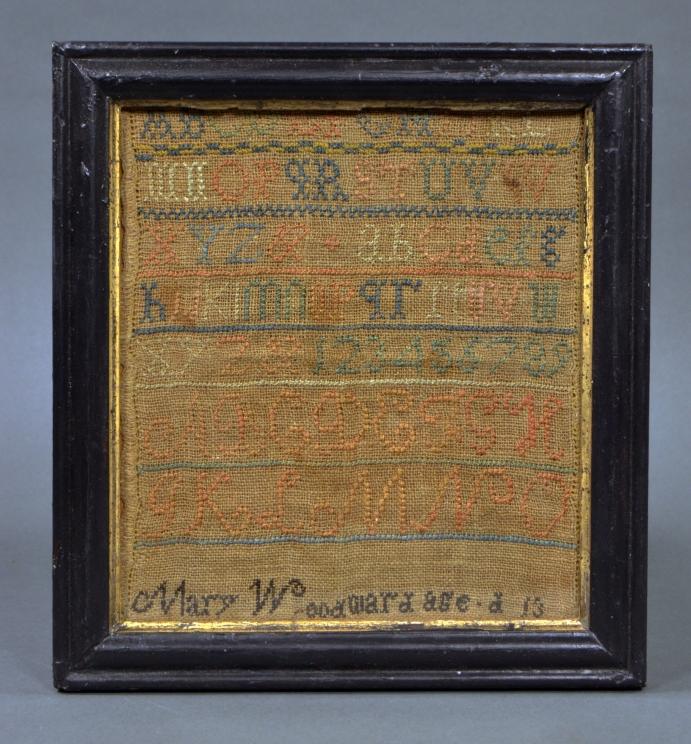 A B C D E F G H I K L
M N O P Q R S T U V W
X Y Z & - a b c d e f g
h i k l m n o p q r s t u v w
x y z & 1 2 3 4 5 6 7 8 9
A B C D E F G H
I K L M N O
Mary Woodward aged 13